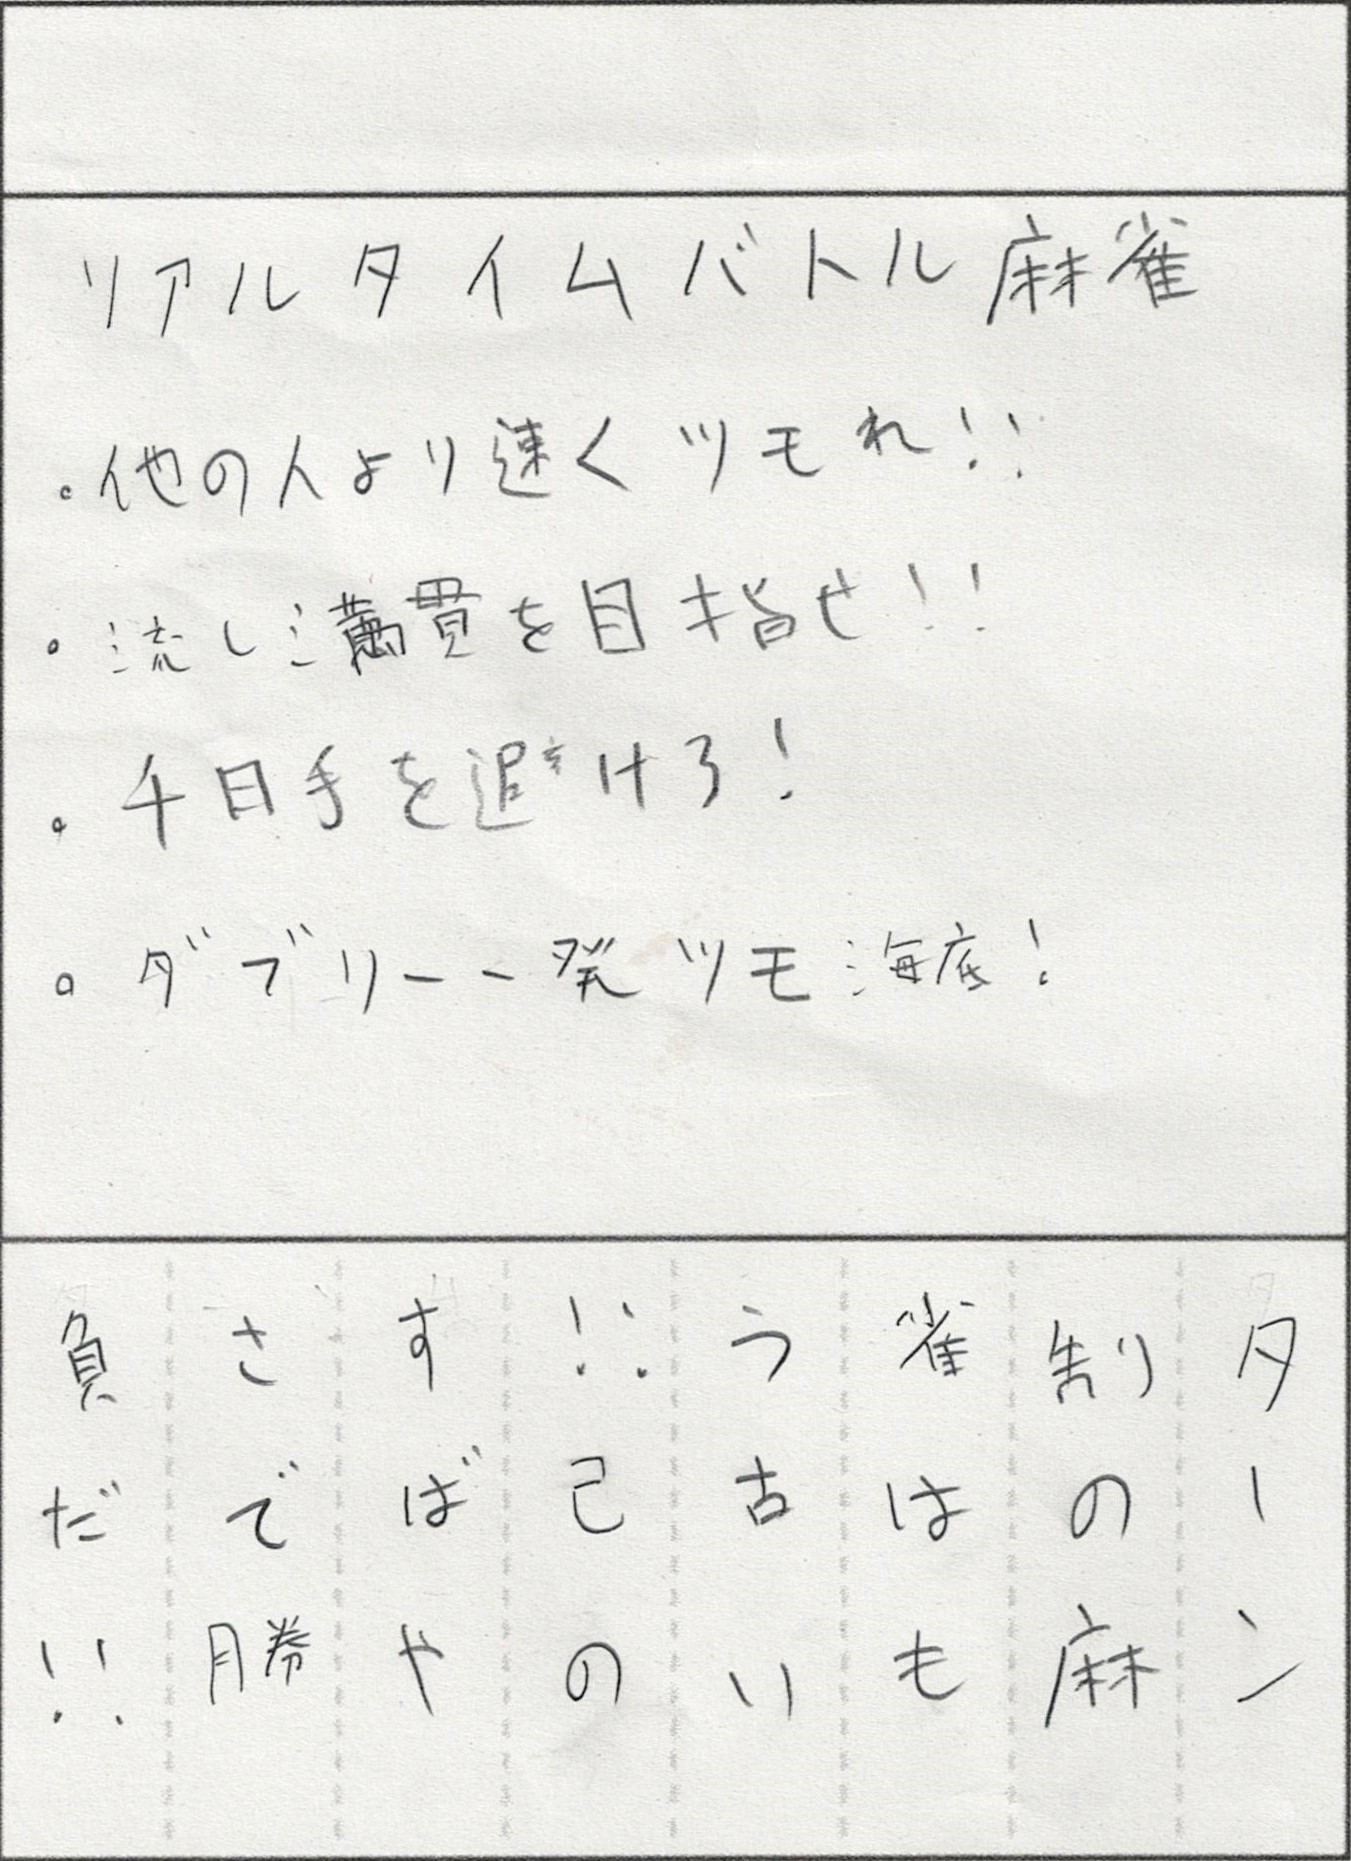 リアルタイムバトル麻雀
・他の人より速くツモれ!!
・流し満貫を目指せ!!
・千日手を避けろ!
・ダブリー一発ツモ海底!
ターン
制の麻
雀はも
う古い
!!己の
すばや
さで勝
負だ!!